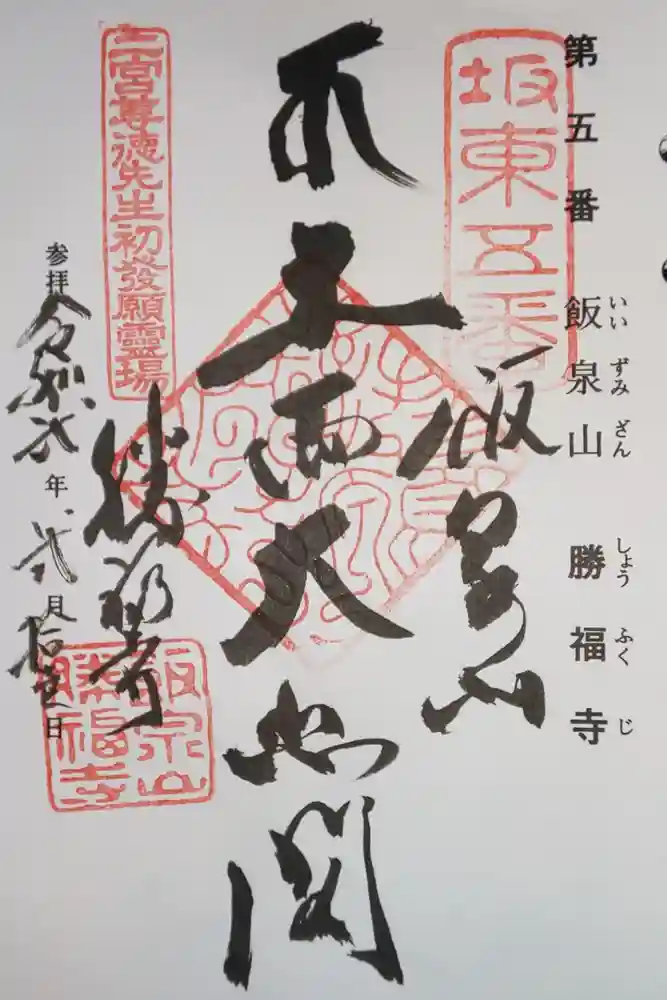 第五番 飯泉山 勝福寺
いい ずみ ざん しょう ふく じ
坂東五番
飯泉山
十一面大悲閣
勝福寺
二宮尊徳先生初發願靈場
飯泉山
勝福寺
参拝 令和弐年弐月拾壱日